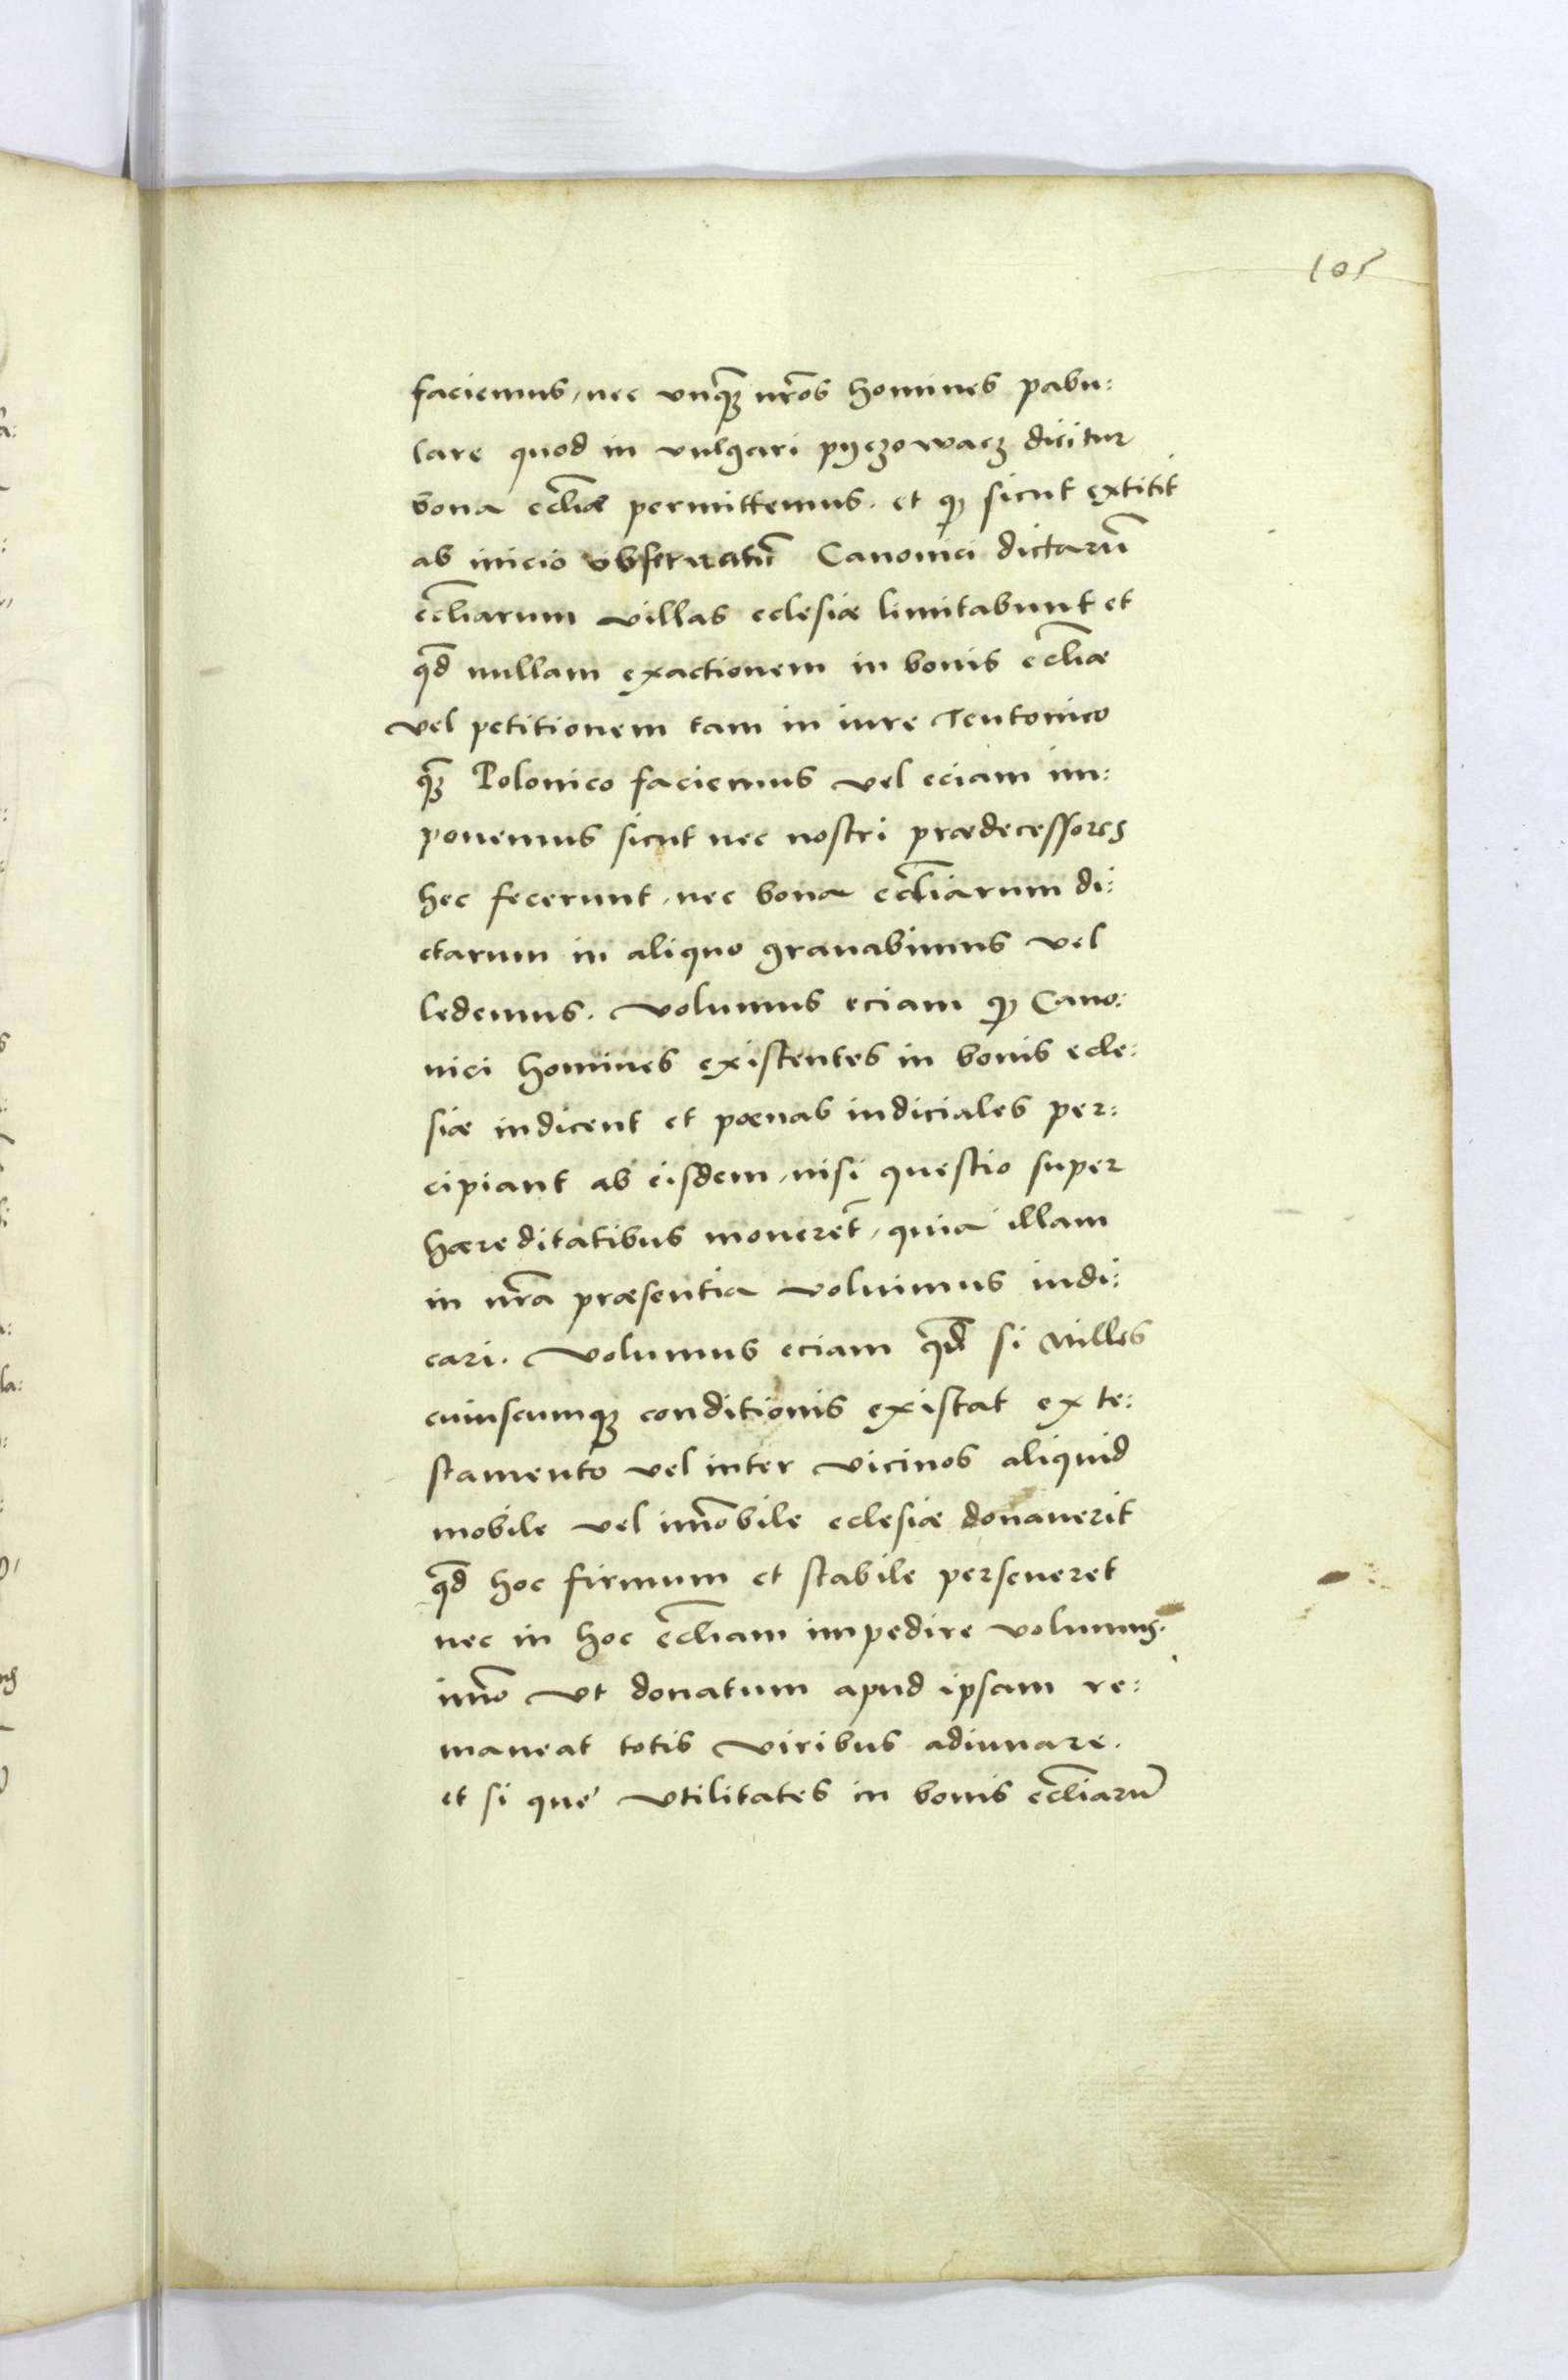 105
faciemus, nec unq̃ nr̃os homines pabu:
lare quod in vulgari pyczowacz dicitur
bona eccl̃iæ permittemus. et q̃ sicut extitit
ab inicio observatũ Canonici dictarũ
eccl̃iarum villas eclesiæ limitabunt et
qd̃ nullam exactionem in bonis eccl̃iæ
vel petitionem tam in iure Teutonico
q̃ Polonico faciemus vel eciam im:
ponemus sicut nec nostri prædecessores
hec fecerunt, nec bona eccl̃iarum di:
ctarum in aliquo gravabimus vel
ledemus. Volumus eciam q̃ Cano:
nici homines existentes in bonis ecle:
siæ iudicent et poenas iudiciales per:
cipiant ab eisdem, nisi questio super
hæreditatibus moveret̃, quia illam
in nr̃a præsentia volumus iudi:
cari. Volumus eciam qd̃ si Miles
cuiuscumq; conditionis existat ex te:
stamento vel inter vicinos aliquid
mobile vel im̃obile eclesiæ donaverit
qd̃ hoc firmum et stabile perseveret
nec in hoc eccl̃iam impedire volumus.
im̃o ut donatum apud ipsam re:
maneat totis viribus adiuvare.
et si que utilitates in bonis eccl̃iarũ